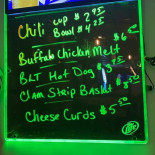 Chili cup $2.95
Bowl $4.25
Buffalo Chicken Melt $6
BLT Hot Dog $3
Clam Strip Basket $8
Cheese Curds $5